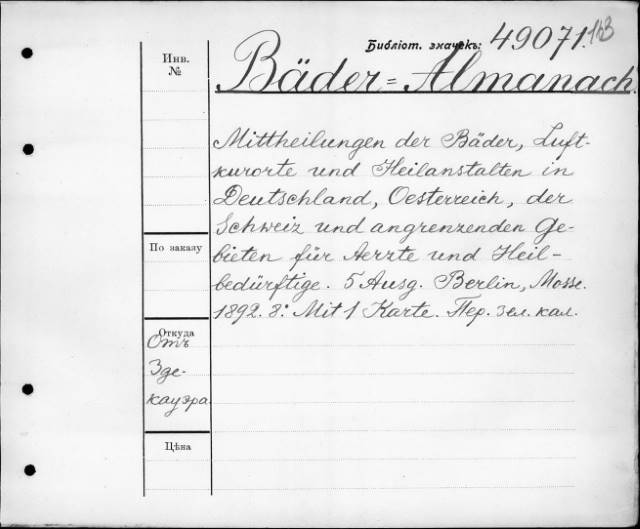 Библіот. значекъ: 49071.
Инв.
№
Bäder-Almanach.
Mittheilungen der Bäder, Luft-
kurorte und Heilanstalten in
Deutschland, Oesterreich, der
Schweiz und angrenzenden Ge-
bieten für Aerzte und Heil-
bedürftige. 5 Ausg. Berlin, Mosse.
1892. 8º Mit 1 Karte. Пер. зел. кал.
По заказу
Откуда
Отъ
Зде-
кауэра
Цѣна